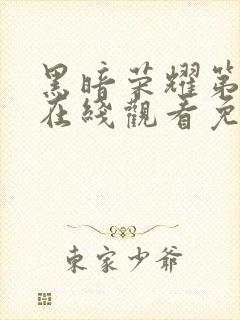 黑暗荣耀第
在綫觀看免
東家少爺